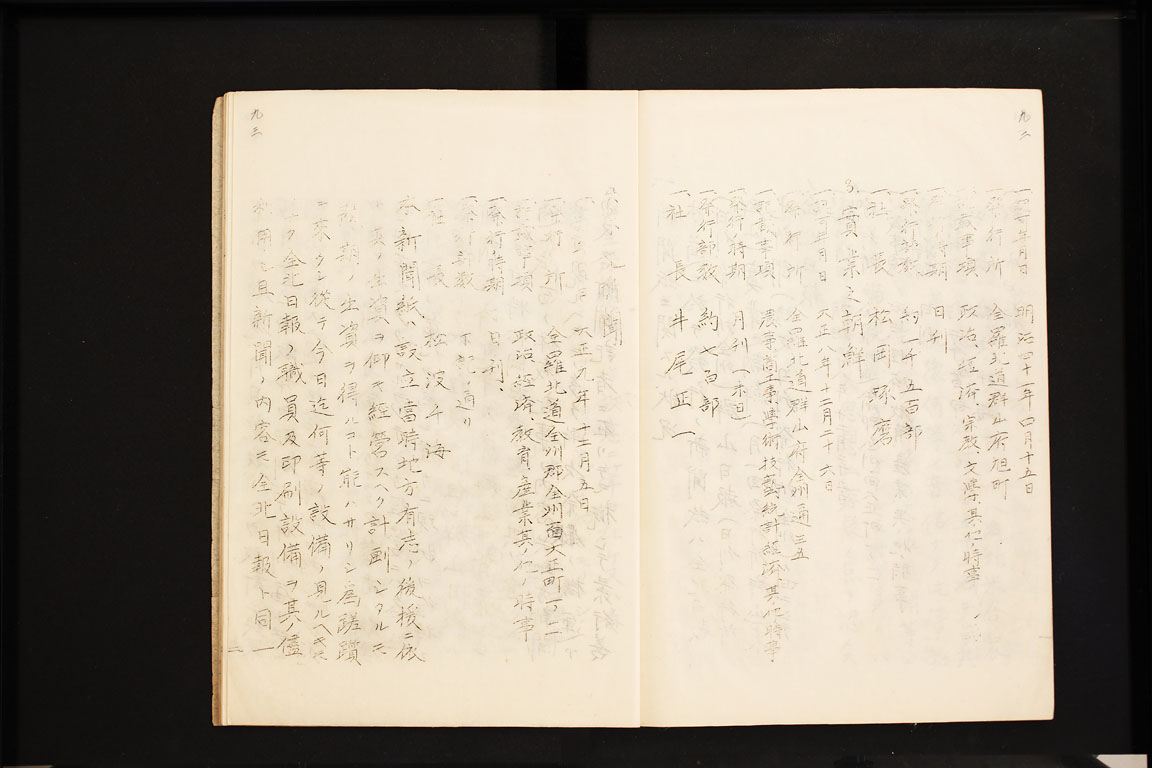 一、認可年月日 明治四十一年四月十五日
一、発行所 全羅北道群山府旭町
一、記載事項 政治、経済、宗教、文学、其ノ他ノ時事
一、発行時期 日刊
一、発行部数 約一千五百部
一、社長 松岡琢磨
3. 實業之朝鮮
一、認可年月日 大正八年十二月二十六日
一、発行所 全羅北道群山府全州通三五
一、記載事項 農事商工事學術技藝統計経済、其ノ他時事
一、発行時期 月刊（末日）
一、発行部数 約七百部
一、社長 井尾正一
九三
大正九年十二月五日
発行所 全羅北道全州郡全州面大正町一ノ一二
記載事項 政治、経済、教育、産業其ノ他ノ時事
一、発行時期 日刊、
発行部数 下記ノ通リ
一、社長 松波千海
本新聞紙ハ設立當時地方有志ノ後援ニ依
リ其ノ出資ヲ仰キ経営スヘク計画シタルモ
期ノ出資ヲ得ルコト能ハサリシ為蹉躓
ヲ来タシ従テ今日迄何等ノ設備ノ見ルヘキモ
ナク全北日報ノ職員及印刷設備ヲ其ノ儘
利用シ且新聞ノ内容モ全北日報ト同一
九三